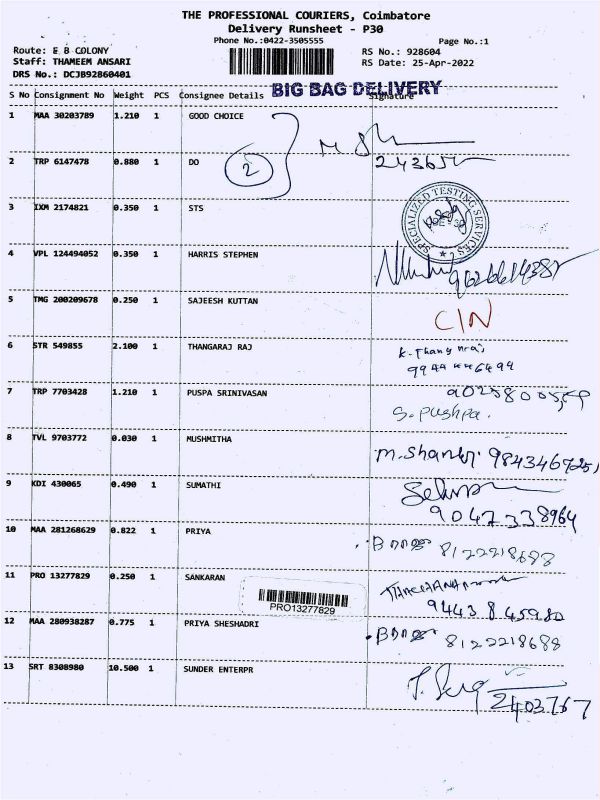 THE PROFESSIONAL COURIERS, Coimbatore
Delivery Runsheet - P30
Phone No.:0422-3505555
Page No.:1
Route: E B COLONY
RS No.: 928604
Staff: THAMEEM ANSARI
RS Date: 25-Apr-2022
DRS No.: DCJB92860401
BIG BAG DELIVERY
S No Consignment No Weight PCS Consignee Details Signature
1 MAA 30203789 1.210 1 GOOD CHOICE
2 TRP 6147478 0.880 1 DO 2
3 IXM 2174821 0.350 1 STS
SPECIALIZED TESTING SERVICES
4 VPL 124494052 0.350 1 HARRIS STEPHEN
5 TMG 200209678 0.250 1 SAJEESH KUTTAN
CIN
6 STR 549855 2.100 1 THANGARAJ RAJ
7 TRP 7703428 1.210 1 PUSPA SRINIVASAN
S. pushpa.
8 TVL 9703772 0.030 1 MUSHMITHA
9 KDI 430065 0.490 1 SUMATHI
9047338964
10 MAA 281268629 0.822 1 PRIYA
8122218688
11 PRO 13277829 0.250 1 SANKARAN
PRO13277829
9443845980
12 MAA 280938287 0.775 1 PRIYA SHESHADRI
8122218688
13 SRT 8308980 10.500 1 SUNDER ENTERPR
2403767